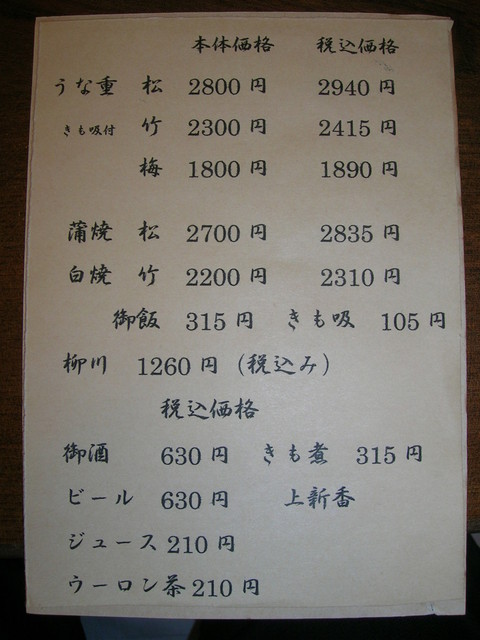 本体価格 税込価格
うな重 松 2800円 2940円
きも吸付 竹 2300円 2415円
梅 1800円 1890円
蒲焼 松 2700円 2835円
白焼 竹 2200円 2310円
御飯 315円 きも吸 105円
柳川 1260円（税込み）
税込価格
御酒 630円 きも煮 315円
ビール 630円 上新香
ジュース 210円
ウーロン茶 210円